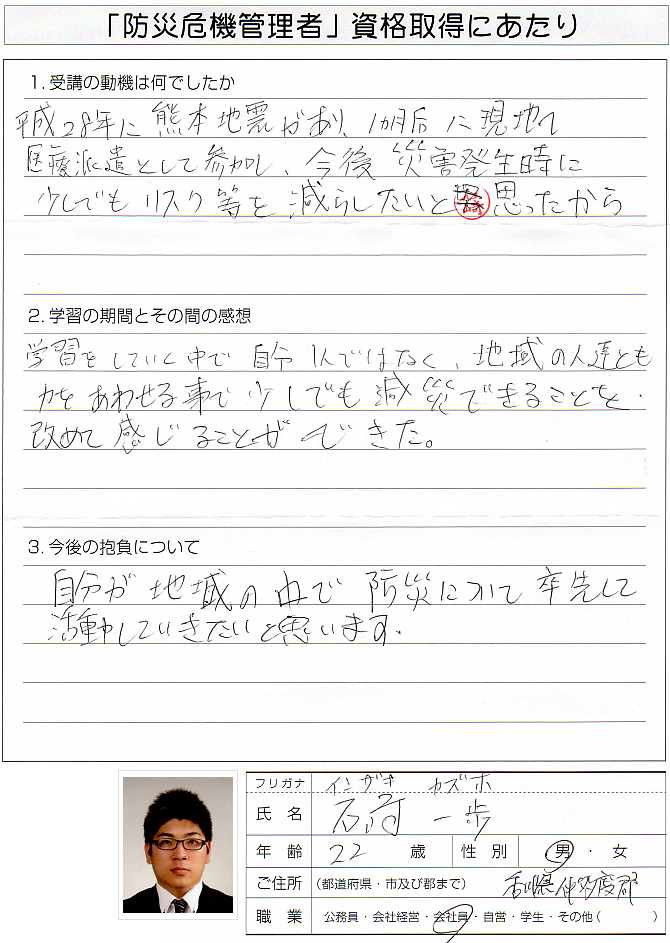 「防災危機管理者」資格取得にあたり
1. 受講の動機は何でしたか
平成28年に熊本地震があり、1カ月后に現地で
医療派遣として参加し、今後災害発生時に
少しでもリスク等を減らしたいと思ったから
2. 学習の期間とその間の感想
学習をしていく中で自分1人ではなく、地域の人達とも
力をあわせる事で少しでも減災できることを、
改めて感じることができた。
3. 今後の抱負について
自分が地域の中で防災について率先して
活動していきたいと思います。
フリガナ イシザキ カズホ
氏名 石﨑 一歩
年齢 22 歳 性別 男・女
ご住所 (都道府県・市及び郡まで) 香川県仲多度郡
職業 公務員・会社経営・会社員・自営・学生・その他( )